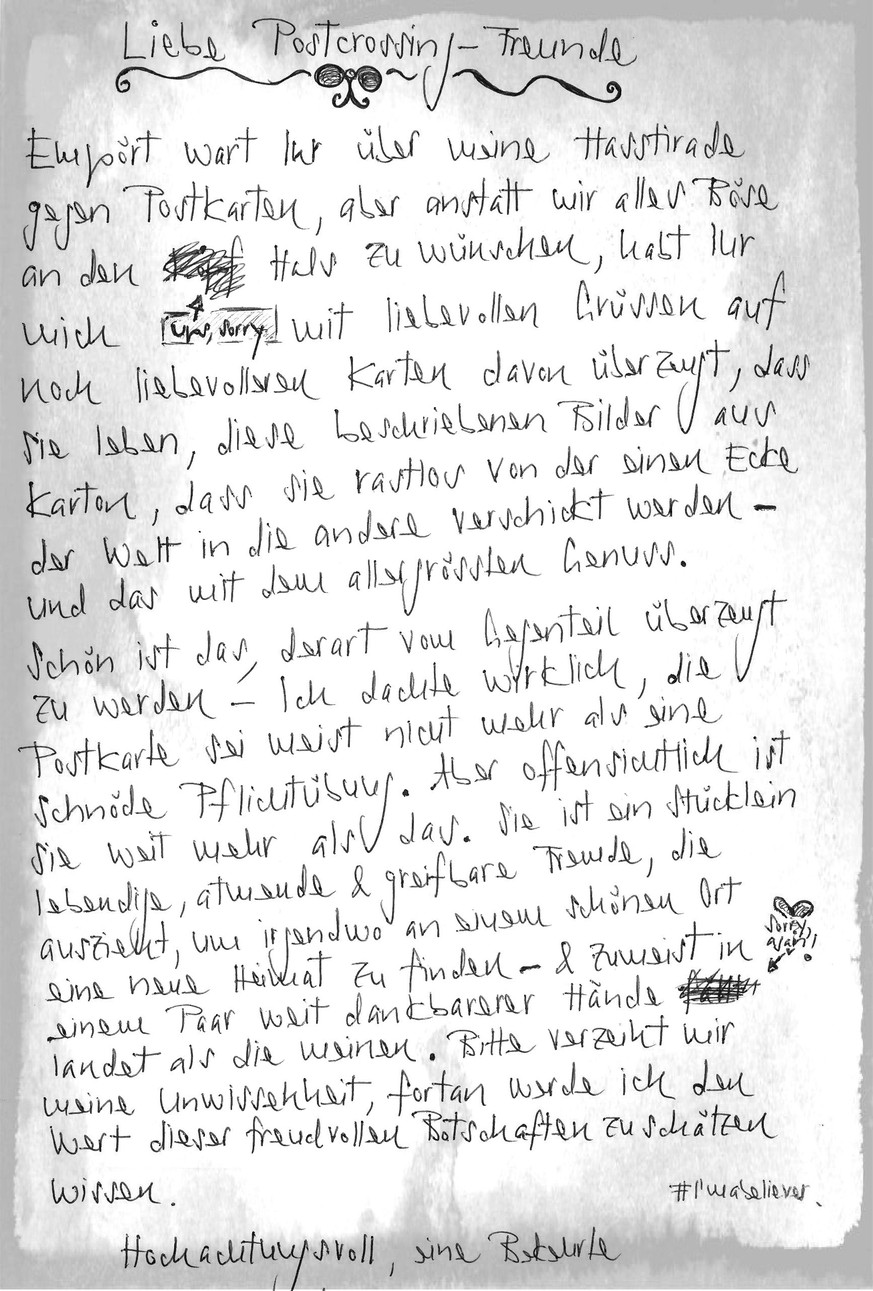 Liebe Postcrossing-Freunde
Empört wart Ihr über meine Hasstirade
gegen Postkarten, aber anstatt mir alles Böse
an den Hals zu wünschen, habt Ihr
mich mit liebevollen Grüssen auf
Ups, sorry
noch liebevolleren Karten davon überzeugt, dass
sie leben, diese beschriebenen Bilder aus
Karton, dass sie rastlos von der einen Ecke
der Welt in die andere verschickt werden –
und das mit dem allergrössten Genuss.
Schön ist das, derart vom Gegenteil überzeugt
zu werden – Ich dachte wirklich, die
Postkarte sei meist nicht mehr als eine
schnöde Pflichtübung. Aber offensichtlich ist
sie weit mehr als das. Sie ist ein Stücklein
lebendige, atmende & greifbare Freude, die
auszieht, um irgendwo an einem schönen Ort
eine neue Heimat zu finden – & zumeist in
sorry,
again!
einem Paar weit dankbarerer Hände
landet als die meinen. Bitte verzeiht mir
meine Unwissenheit, fortan werde ich den
Wert dieser freudvollen Botschaften zu schätzen
wissen.
#I'mabeliever.
Hochachtungsvoll, eine Bekehrte